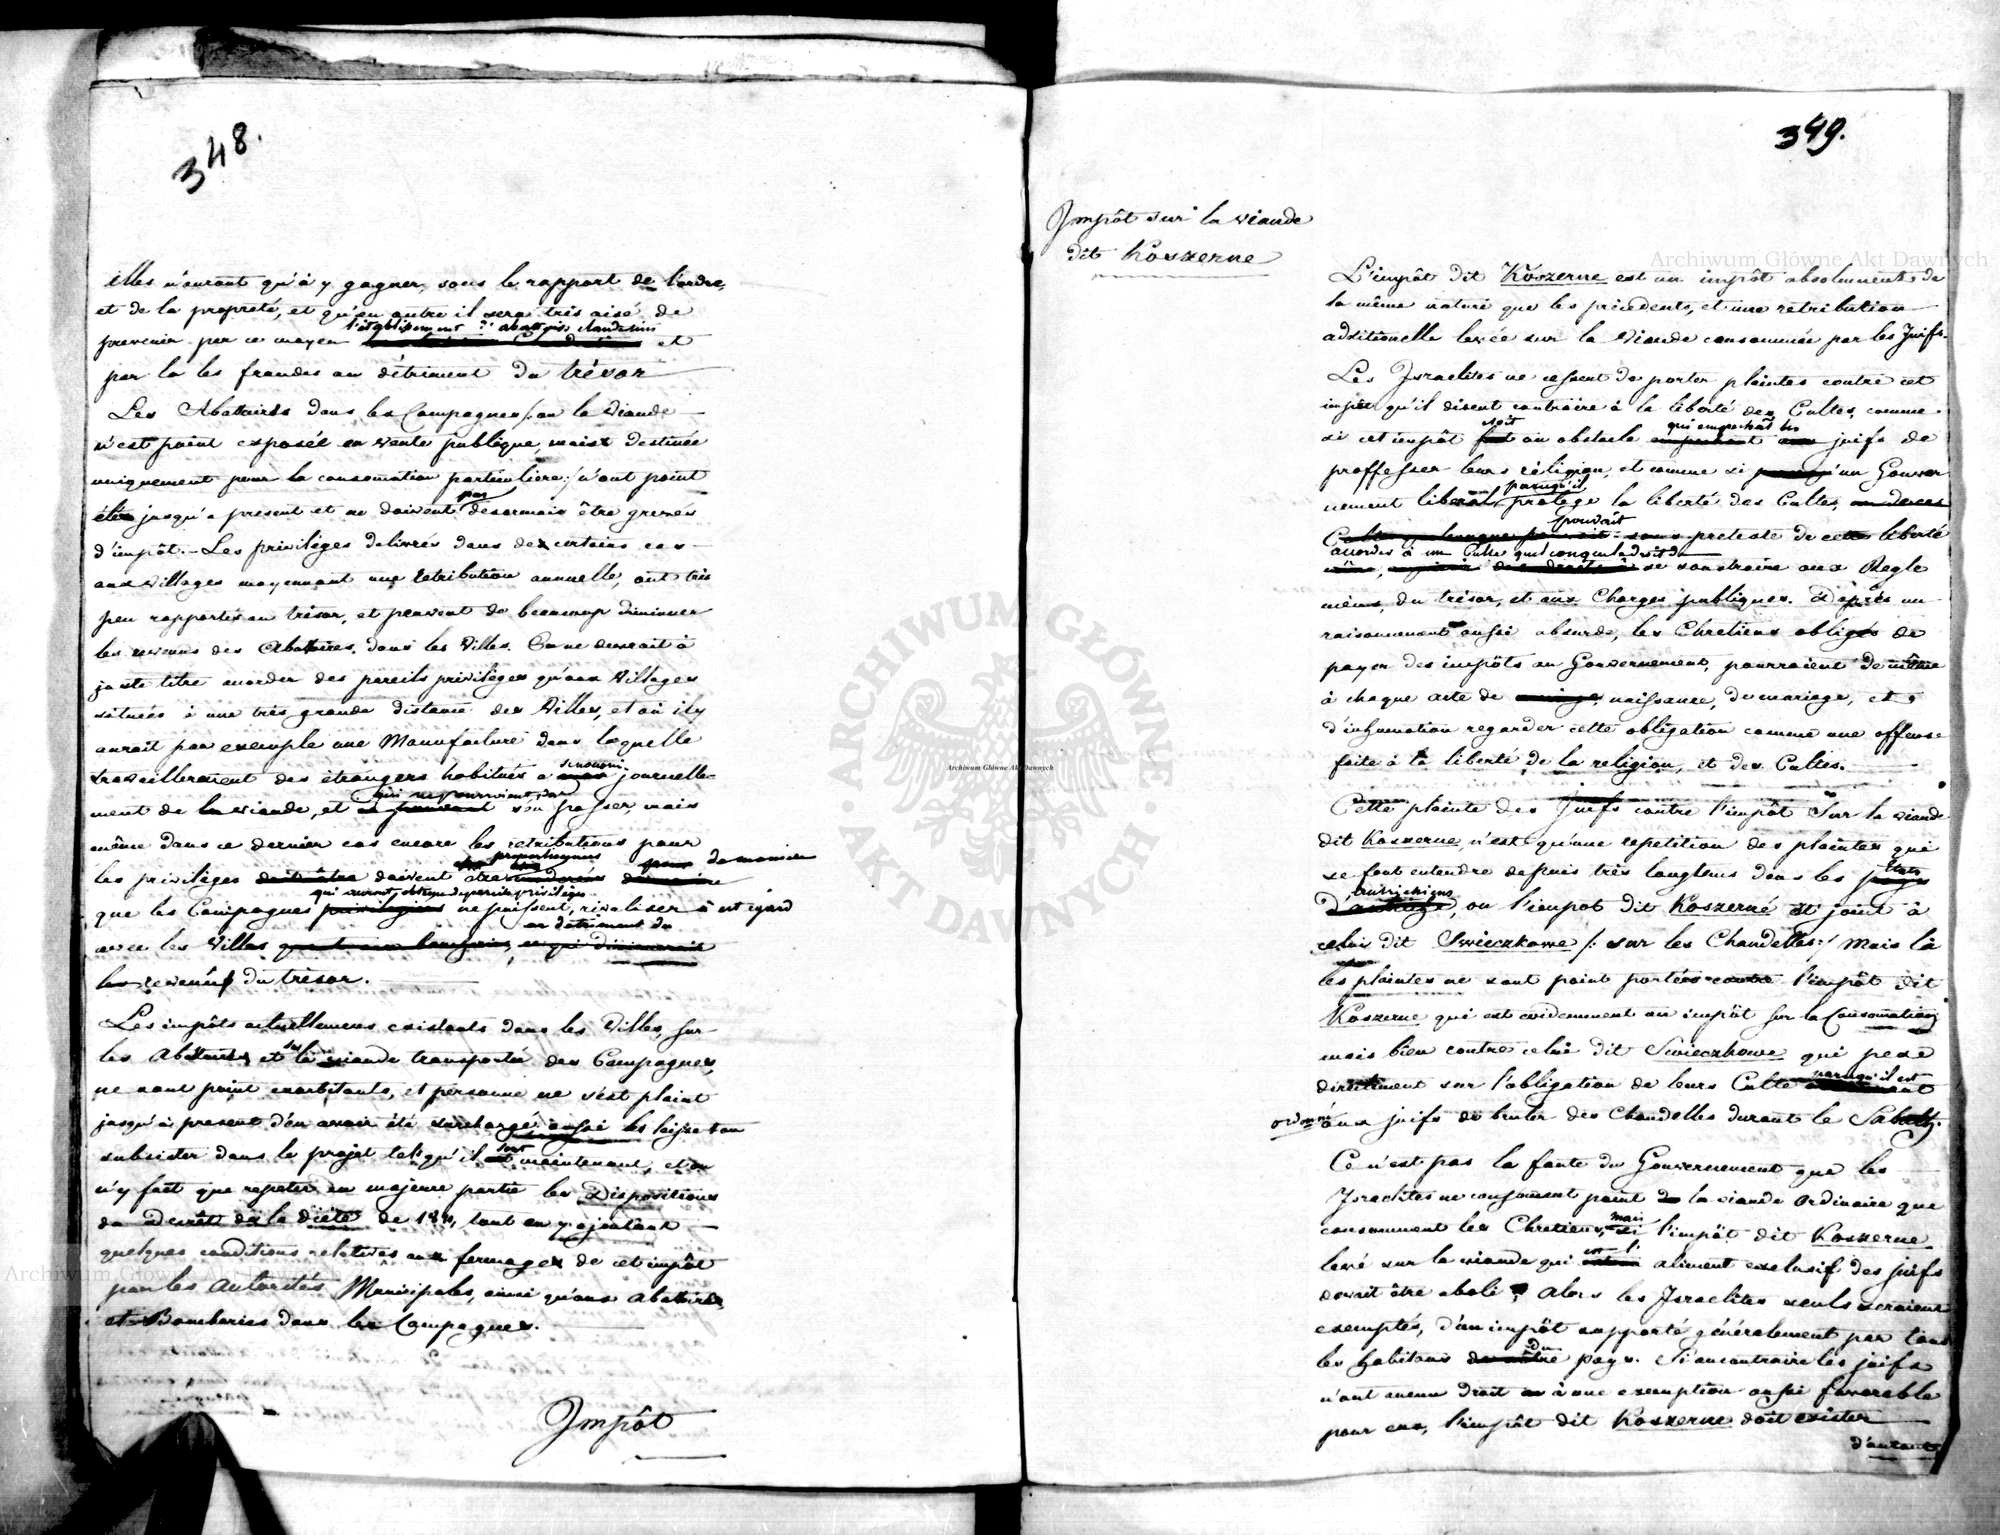 348.
elles n'auront qu'à y gagner, sous le rapport de l'ordre,
et de la propreté, et qu'en outre il sera très aisé de
l'établissement d'abattoirs clandestins
prevenir par ce moyen et
par la les fraudes au détriment du trésor
Les Abattoirs dans les Campagnes /: ou la Viande
n'est point exposée en vente publique, mais destinée
uniquement pour la consomation particuliere :/ n'ont point
pas
étés jusqu'a present et ne doivent desormais être grevés
d'impôt. - Les privilèges delivrés dans des certains cas
aux villages moyennant une retribution annuelle, ont très
peu rapportés au trésor, et peuvent de beaucoup diminuer
les revenus des Abattoires dans les Villes. On ne devrait à
juste titre accorder des pareils privilèges qu'aux Villages
situées à une très grande distance des Villes, et où il y
aurait par exemple une Manufacture dans laquelle
travailleraient des étrangers habitués a se nourrir journelle-
qui ne pourroient pas
ment de la viande, et s'en passer, mais
même dans ce dernier cas encore les retributions pour
proportionnées
les privilèges doivent être de maniere
qui auront obtenu de pareils privilèges
que les Campagnes ne puissent rivaliser à cet egard
au detriment du
avec les Villes
les revenus du trésor.
Les impôts actuellement existants dans les Villes, sur
les Abattoirs et sur la viande transportée des Campagnes,
ne sont point exorbitants, et personne ne s'est plaint
jusqu'à present d'en avoir été surchargé, aussi les laisse-t-on
subsister dans le projet tels qu'il sont maintenant, et on
n'y fait que repeter en majeure partie les Dispositions
du Decrêt de la diéte de 1811, tout en y ajoutant
quelques conditions relatives aux fermages de cet impôt
par les Autorités Municipales, ainsi qu'aux abattoirs
et Boucheries dans les Campagnes.
Impôt
349.
Impôt sur la viande
dit Koszerne
L'impôt dit Koszerne est un impôt absolument de
la même nature que les précedents, et une retribution
additionelle levée sur la Viande consommée par les Juifs.
Les Israelites ne cessent de porter plaintes contre cet
impôt qu'il disent contraire à la liberté des Cultes, comme
soit qui empechait les
si cet impôt fut un obstacle juifs de
proffesser leur réligion, et comme si un Gouver
parcequ'il
nement liberal protege la liberté des Cultes,
pouvait
sous pretexte de cette liberté
accordée à un Culte quelconque le droit de
se soustraire aux Regle
mens, du trésor, et aux Charges publiques. D'après un
raisonnement aussi absurde, les Chretiens obligés de
payer des impôts au Gouvernement, pourraient de même
à chaque acte de naissance, de mariage, et
d'inhumation regarder cette obligation comme une offense
faite à la liberté de la religion, et des Cultes.
Cette plainte des Juifs contre l'impôt sur la viande
dit Koszerne, n'est qu'une repetition des plaintes qui
se font entendre depuis très longtems dans les Etats
autrichiens
d'autriche, ou l'impot dit Koszerné est joint à
celui dit Swieczkowe /: sur les Chandelles :/ Mais là
les plaintes ne sont point portées contre l'impôt dit
Koszerne qui est evidemment un impôt sur la Consomation
mais bien contre celui dit Swieczkowe qui pese
directement sur l'obligation de leurs Culte parcequ'il est
ordonné aux juifs de bruler des Chandelles durant le Sabath.
Ce n'est pas la faute du Gouvernement que les
Israelites ne consoment point de la viande ordinaire que
consomment les Chretiens, mais si l'impôt dit Koszerne
est l'
levé sur la viande qui aliment exclusif des juifs
devait être aboli, alors les Israelites seuls seraient
exemptés, d'un impôt supporté généralement par tous
les habitans du pays. Si au contraire les juifs
n'ont aucun droit à une exemption aussi favorable
pour eux, l'impôt dit Koszerne doit exister
d'autant
Archiwum Główne Akt Dawnych
ARCHIWUM GŁÓWNE · AKT DAWNYCH ·
Archiwum Główne Akt Dawnych
Archiwum Główne Akt Dawnych